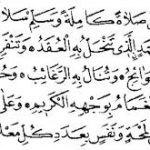 صَلَاةً كَامِلَةً وَسَلِّمْ سَلَا
دِ الَّذِى تَنْحَلُّ بِهِ الْعُقَدُ وَتَنْفَرِ
وَائِجُ وَتُنَالُ بِهِ الرَّغَائِبُ وَحُ
غَمَامُ بِوَجْهِهِ الْكَرِيْمِ وَعَلَى
لَمْحَةٍ وَنَفَسٍ بِعَدَدِ كُلِّ مَعْلُ